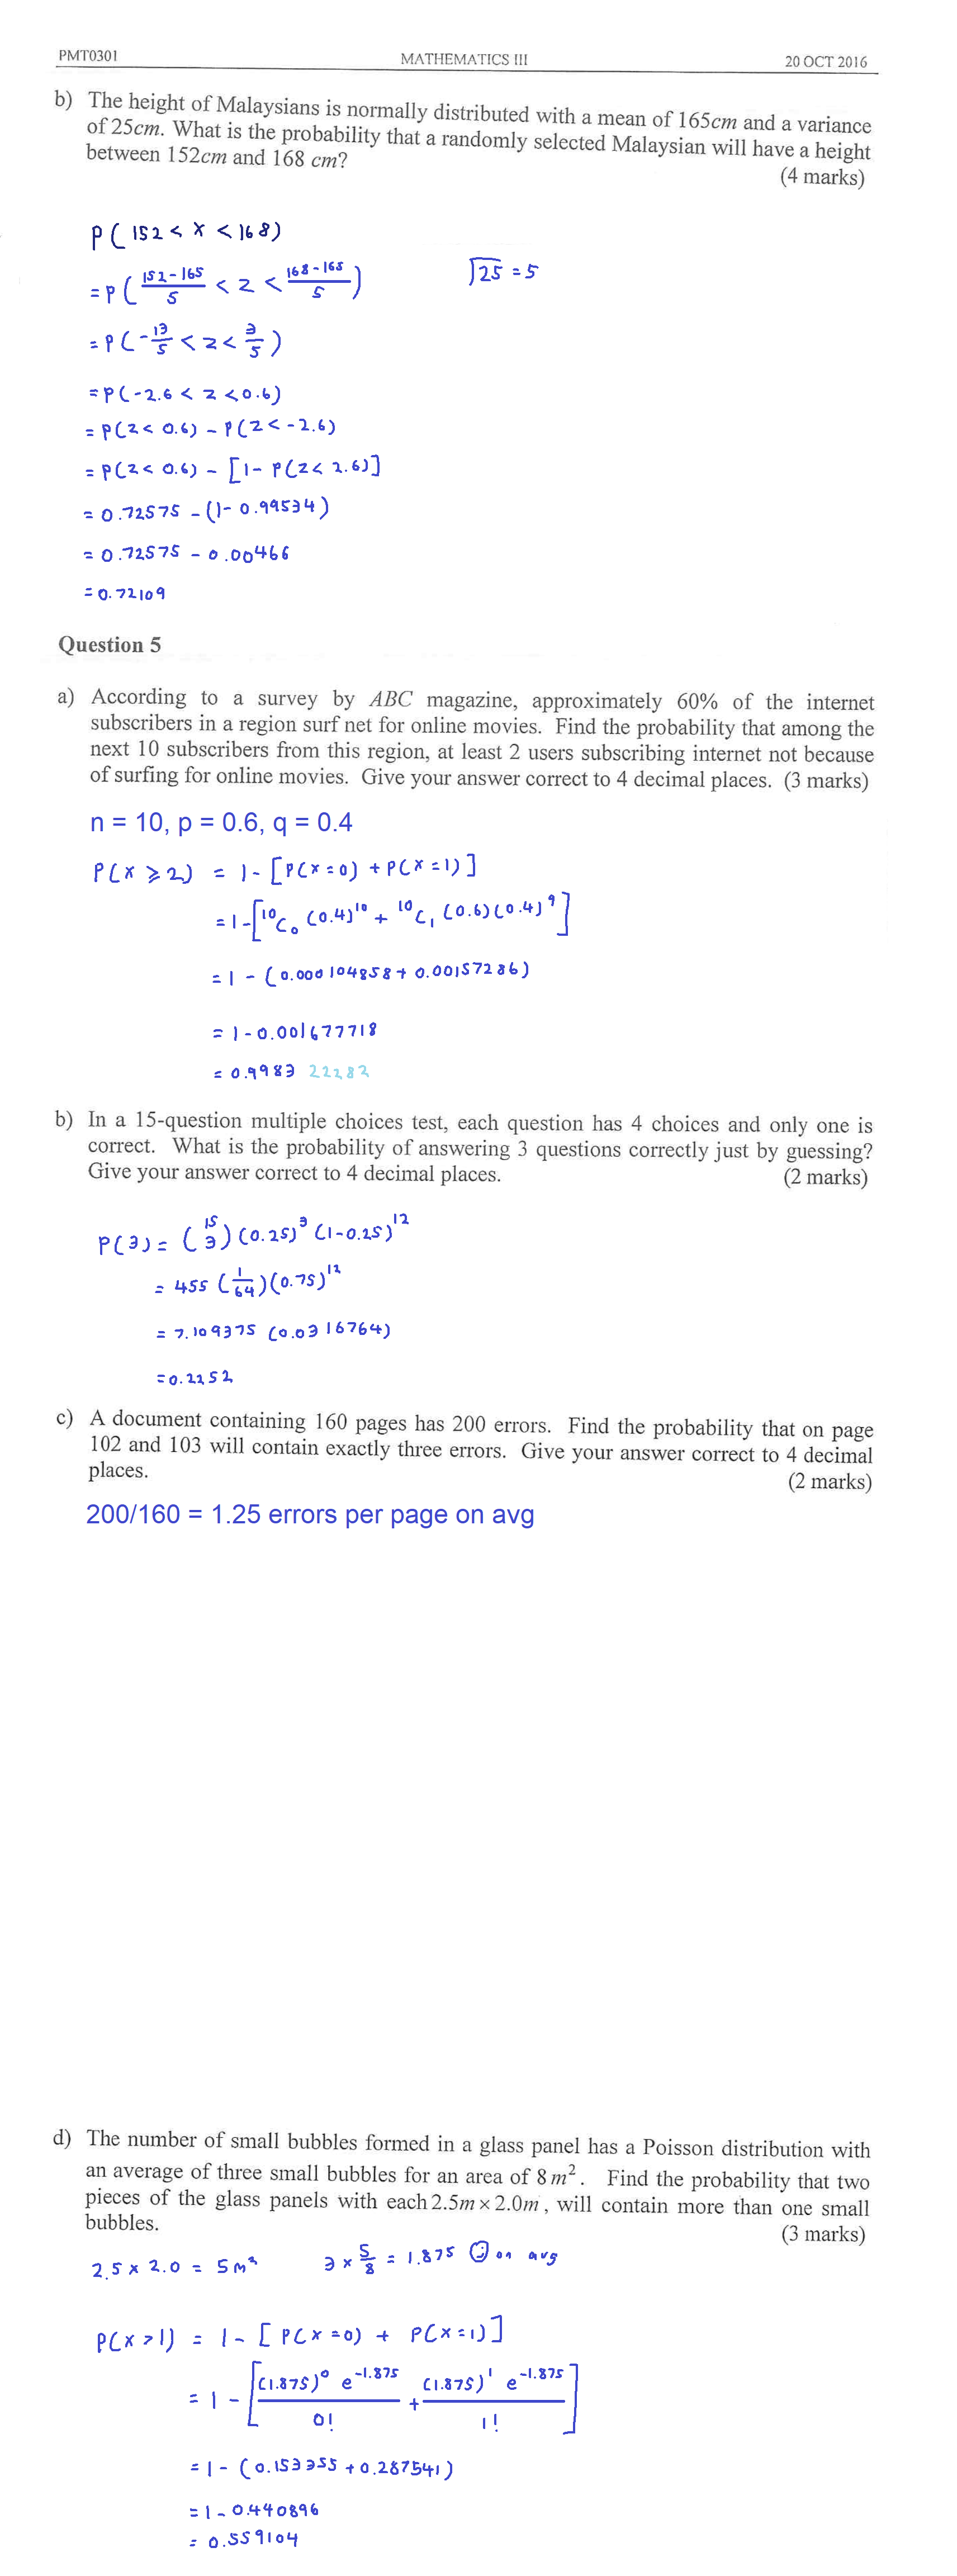 PMT0301 MATHEMATICS III 20 OCT 2016
b) The height of Malaysians is normally distributed with a mean of 165cm and a variance
of 25cm. What is the probability that a randomly selected Malaysian will have a height
between 152cm and 168 cm?
(4 marks)
P( 152 < X < 168)
= P( (152-165)/5 < Z < (168-165)/5 ) √25 = 5
= P( -13/5 < Z < 3/5 )
= P( -2.6 < Z < 0.6)
= P(Z < 0.6) - P(Z < -2.6)
= P(Z < 0.6) - [1- P(Z < 2.6)]
= 0.72575 - (1- 0.99534)
= 0.72575 - 0.00466
= 0.72109
Question 5
a) According to a survey by ABC magazine, approximately 60% of the internet
subscribers in a region surf net for online movies. Find the probability that among the
next 10 subscribers from this region, at least 2 users subscribing internet not because
of surfing for online movies. Give your answer correct to 4 decimal places. (3 marks)
n = 10, p = 0.6, q = 0.4
P(X ≥ 2) = 1- [P(X=0) + P(X=1)]
= 1-[¹⁰C₀ (0.4)¹⁰ + ¹⁰C₁ (0.6)(0.4)⁹]
= 1 - (0.000104858 + 0.00157286)
= 1 - 0.001677718
= 0.9983 22282
b) In a 15-question multiple choices test, each question has 4 choices and only one is
correct. What is the probability of answering 3 questions correctly just by guessing?
Give your answer correct to 4 decimal places. (2 marks)
P(3) = (15 3)(0.25)³(1-0.25)¹²
= 455 (1/64)(0.75)¹²
= 7.109375 (0.0316764)
= 0.2252
c) A document containing 160 pages has 200 errors. Find the probability that on page
102 and 103 will contain exactly three errors. Give your answer correct to 4 decimal
places. (2 marks)
200/160 = 1.25 errors per page on avg
d) The number of small bubbles formed in a glass panel has a Poisson distribution with
an average of three small bubbles for an area of 8 m². Find the probability that two
pieces of the glass panels with each 2.5m × 2.0m, will contain more than one small
bubbles. (3 marks)
2.5 × 2.0 = 5m² 3 × 5/8 = 1.875 on avg
P(X > 1) = 1 - [ P(X=0) + P(X=1)]
= 1 - [ (1.875)⁰ e^-1.875 / 0! + (1.875)¹ e^-1.875 / 1! ]
= 1 - (0.153355 + 0.287541)
= 1 - 0.440896
= 0.559104